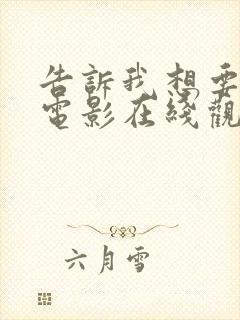 告訴我想要
電影在綫觀
六月雪